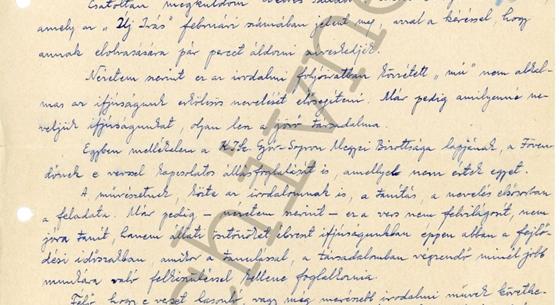 Csatoltan megküldöm
amely az "Új Írás" februári számában jelent meg, azzal a kéréssel, hogy
annak elolvasására pár percet áldozni szíveskedjék.
Nézetem szerint ez az irodalmi folyóiratban közzétett "mű" nem alkal-
mas az ifjúságunk erkölcsi nevelését elősegíteni. Már pedig amilyenné ne-
veljük ifjúságunkat, olyan lesz a jövő társadalma.
Egyben mellékelem a Győr-Sopron Megyei Bizottsága lapjának, a
e verssel kapcsolatos állásfoglalását is, amellyel nem értek egyet.
A művészetnek, közte az irodalomnak is, a tanítás, a nevelés elsősorban
a feladata. Már pedig – nézetem szerint – ez a vers nem felvilágosít, nem
jóra tanít, hanem állati ösztönöket ébreszt ifjúságunkban éppen abban a fejlő-
dési időszakban, amikor a tanulással, a társadalomban végzendő minél jobb
munkára való felkészüléssel kellene foglalkoznia.
hogy e verset hasonló, vagy még merészebb irodalmi művek követhe-
hivne